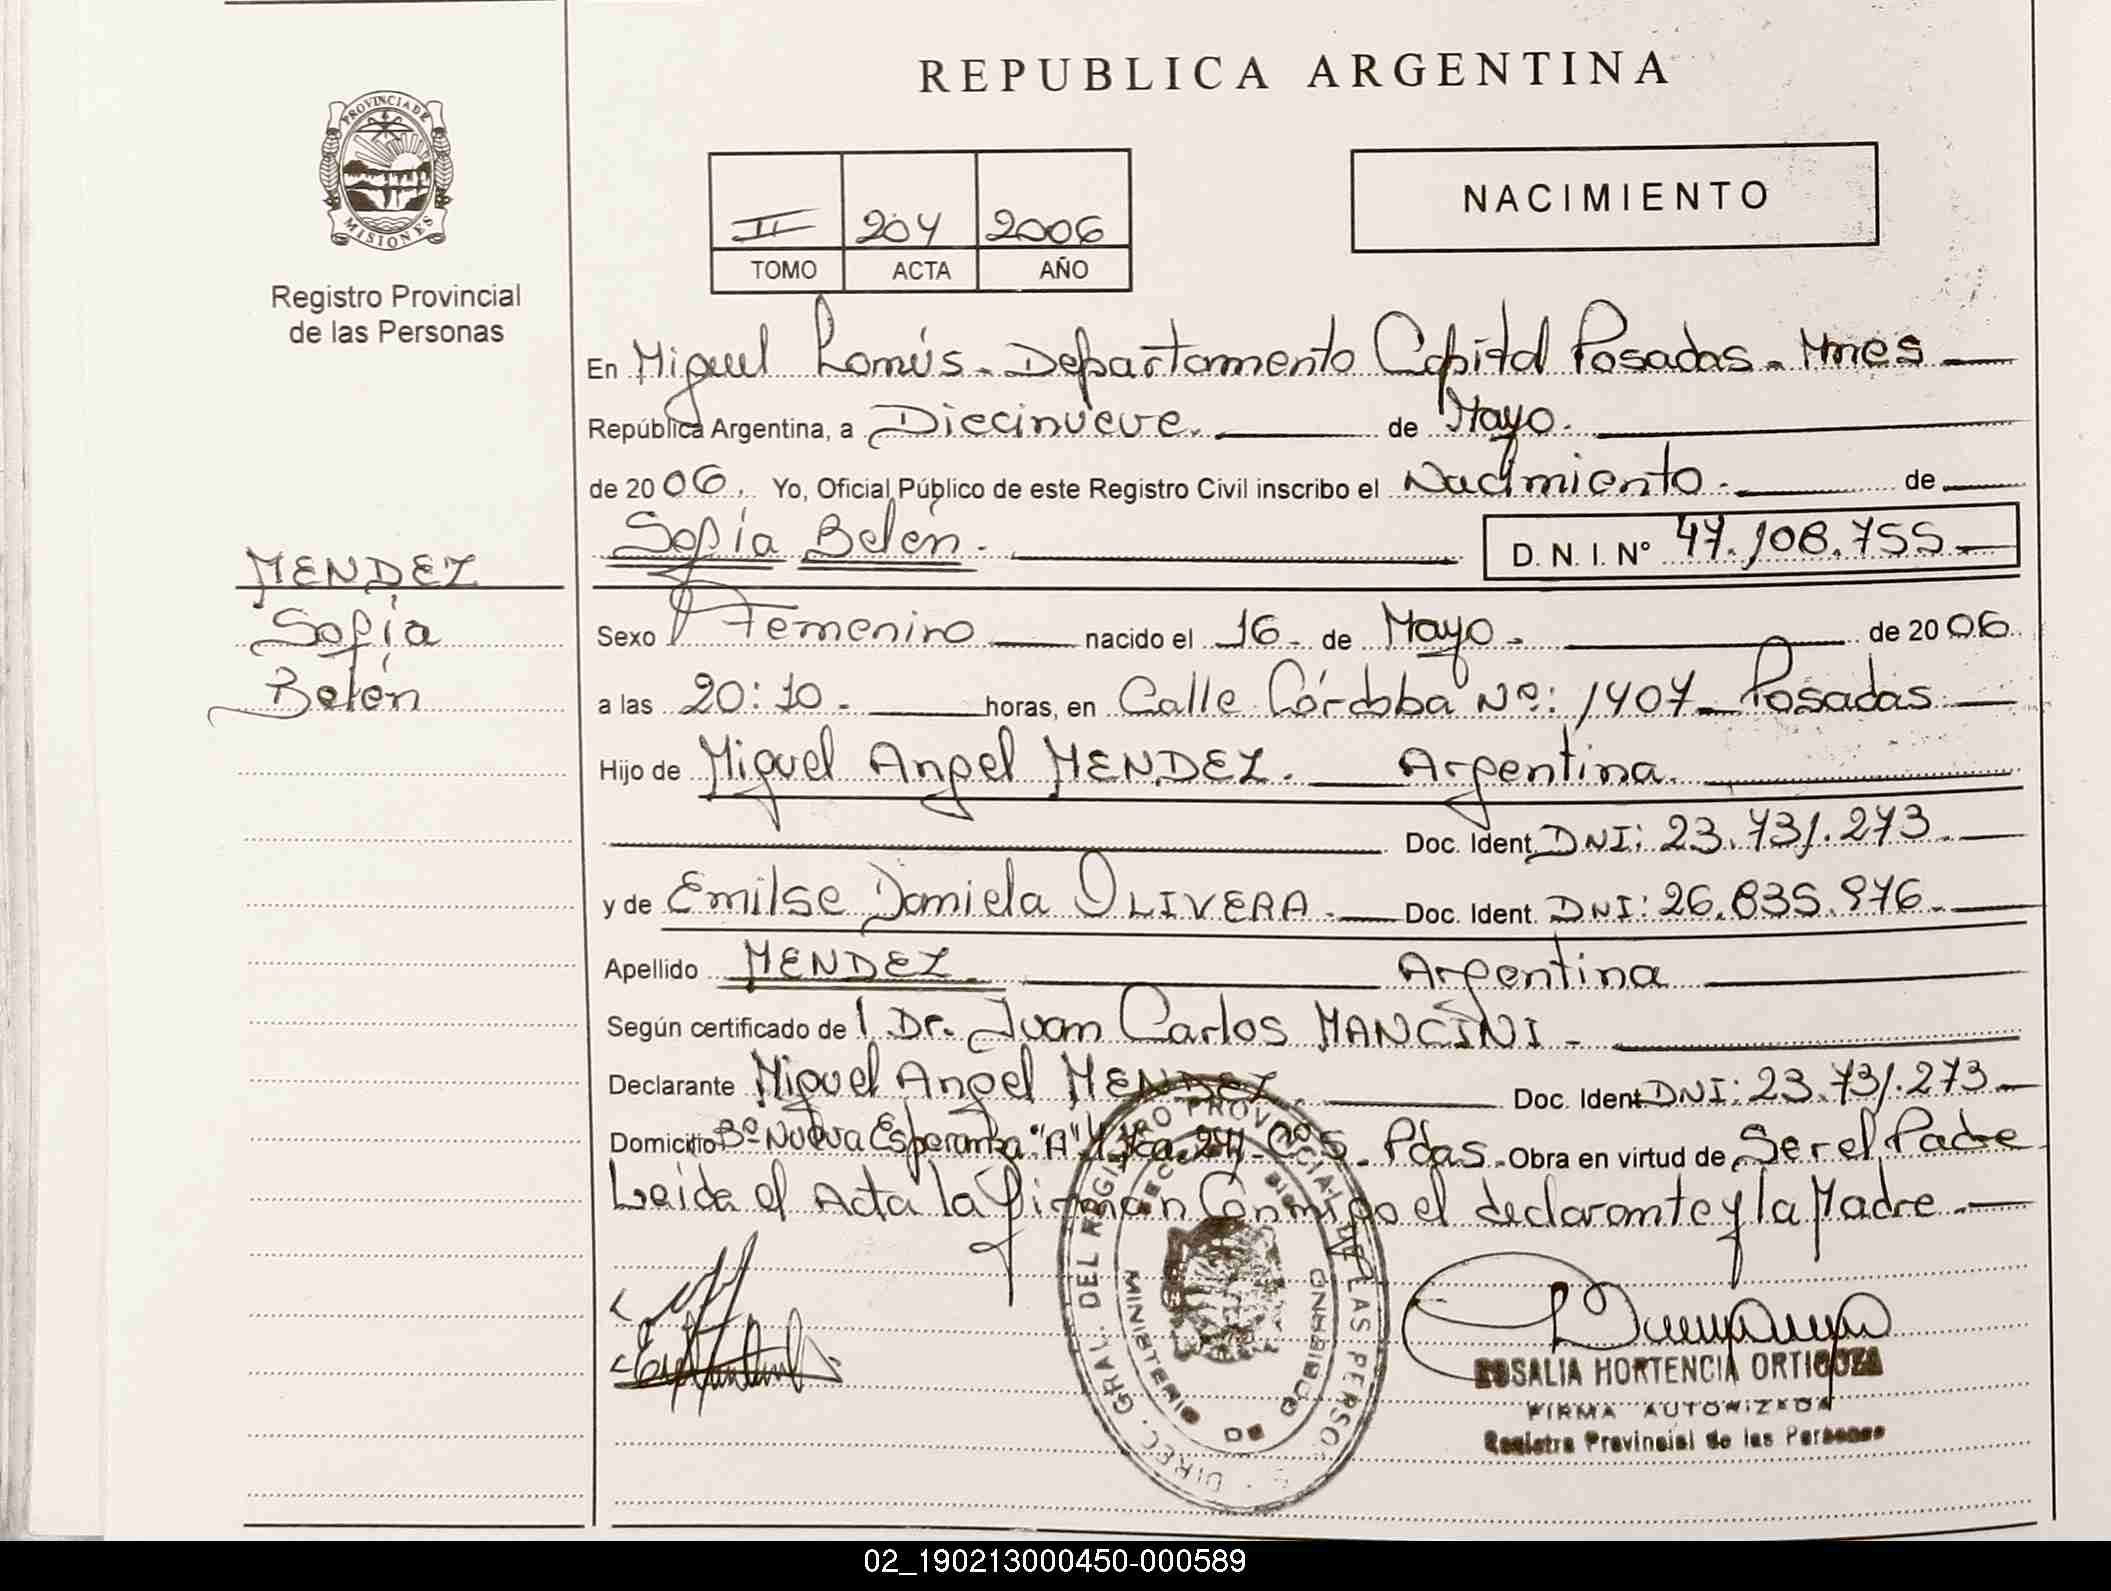 REPUBLICA ARGENTINA
PROVINCIA DE
MISIONES
Registro Provincial
de las Personas
II 204 2006
TOMO ACTA AÑO
NACIMIENTO
En Miguel Lanús - Departamento Capital Posadas - Mnes
República Argentina, a Diecinueve. de Mayo.
de 2006. Yo, Oficial Público de este Registro Civil inscribo el Nacimiento. de
Sofía Belén. D. N. I. Nº 47.108.755
MENDEZ
Sofía
Belén
Sexo Femenino nacido el 16 - de Mayo - de 2006
a las 20:10 - horas, en Calle Córdoba Nº: 1407 - Posadas
Hijo de Miguel Angel MENDEZ. Argentina.
Doc. Ident. DNI: 23.731.273
y de Emilse Daniela OLIVERA. Doc. Ident. DNI: 26.835.976
Apellido MENDEZ Argentina
Según certificado de l Dr. Juan Carlos MANCINI -
Declarante Miguel Angel MENDEZ. Doc. Ident. DNI: 23.731.273
Domicilio Bº Nueva Esperanza "A" Cº 5 - Pdas. Obra en virtud de Ser el Padre
Leida el Acta la firman Conmigo el declarante y la Madre.
DIREC. GRAL. DEL REGISTRO PROVINCIAL DE LAS PERSONAS
MINISTERIO DE GOBIERNO
ROSALIA HORTENCIA ORTIGOZA
FIRMA AUTORIZADA
Registro Provincial de las Personas
02_190213000450-000589